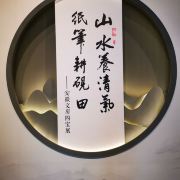 山水養清氣
紙筆耕硯田
——安徽文房四宝展